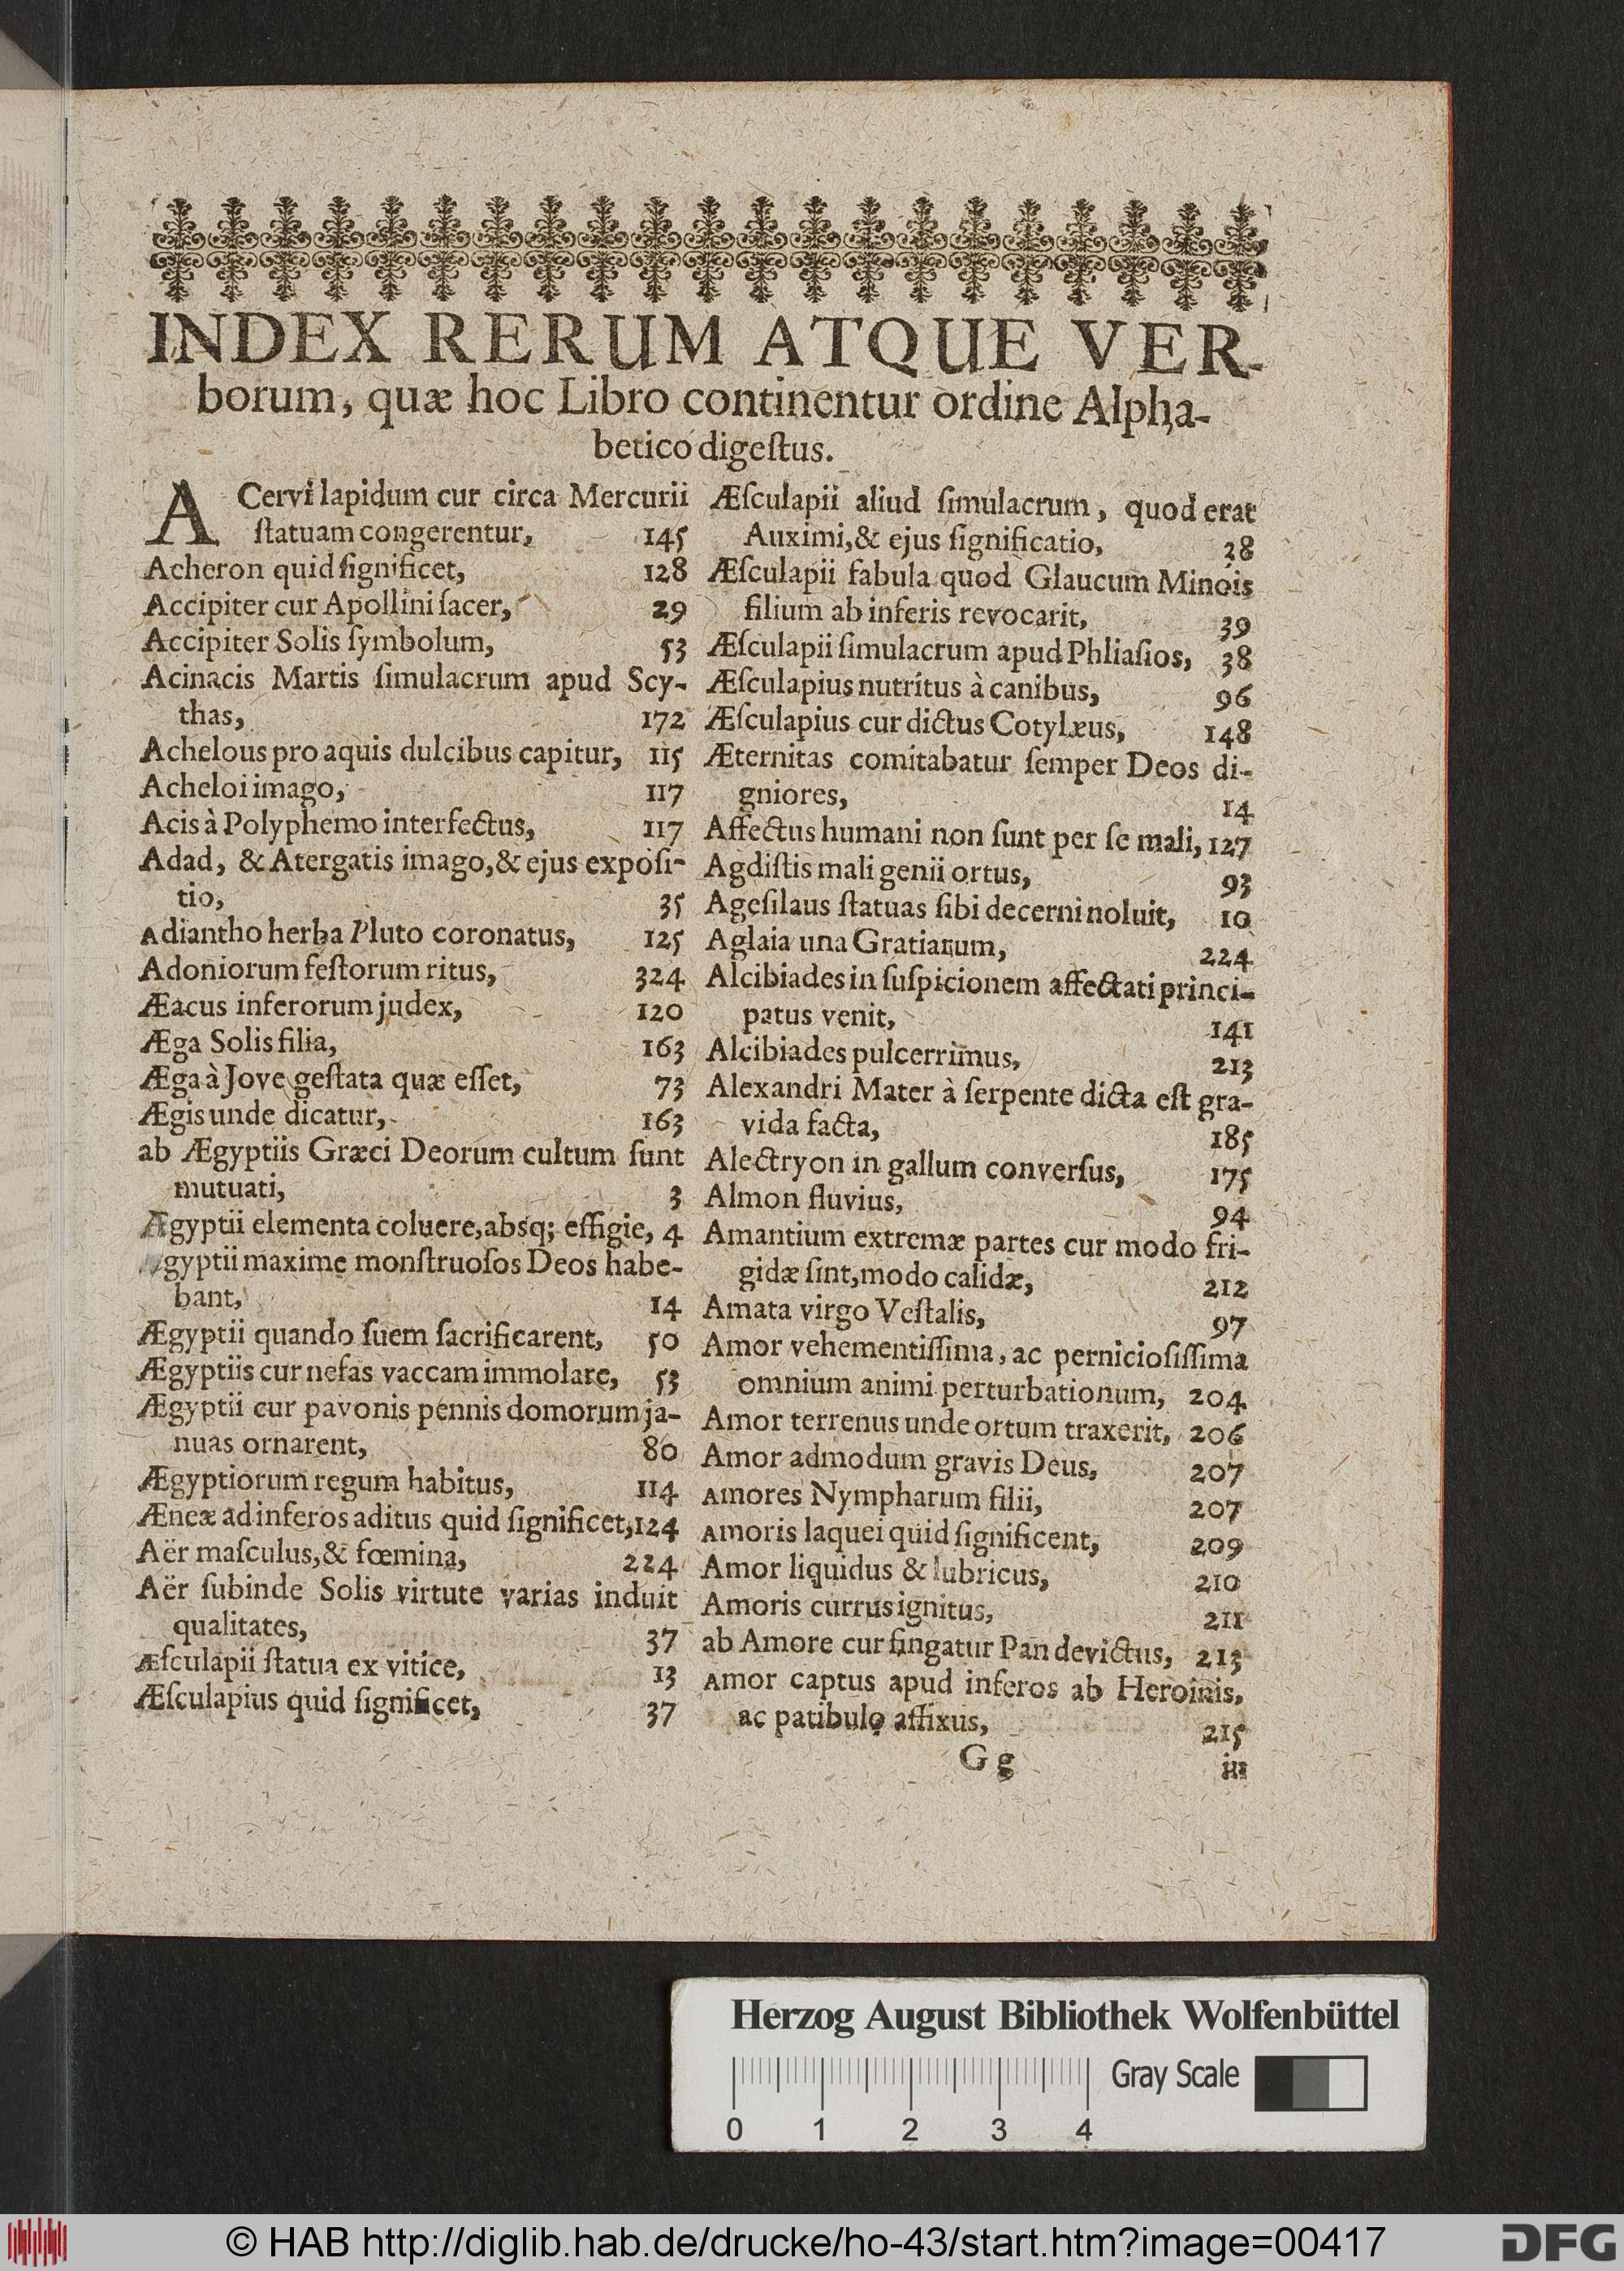 INDEX RERUM ATQUE VER-
borum, quæ hoc Libro continentur ordine Alpha-
betico digeſtus.
ACervi lapidum cur circa Mercurii
ſtatuam congerentur, 145
Acheron quid ſignificet, 128
Accipiter cur Apollini ſacer, 29
Accipiter Solis ſymbolum, 53
Acinacis Martis ſimulacrum apud Scy-
thas, 172
Achelous pro aquis dulcibus capitur, 115
Acheloi imago, 117
Acis à Polyphemo interfectus, 117
Adad, & Atergatis imago, & ejus expoſi-
tio, 35
Adiantho herba Pluto coronatus, 125
Adoniorum feſtorum ritus, 324
Æacus inferorum judex, 120
Æga Solis filia, 163
Æga à Jove geſtata quæ eſſet, 73
Ægis unde dicatur, 163
ab Ægyptiis Græci Deorum cultum ſunt
mutuati, 3
Ægyptii elementa coluere, absq; effigie, 4
Ægyptii maxime monſtruoſos Deos habe-
bant, 14
Ægyptii quando ſuem ſacrificarent, 50
Ægyptiis cur nefas vaccam immolare, 53
Ægyptii cur pavonis pennis domorum ja-
nuas ornarent, 80
Ægyptiorum regum habitus, 114
Æneæ ad inferos aditus quid ſignificet, 124
Aër maſculus, & fœmina, 224
Aër ſubinde Solis virtute varias induit
qualitates, 37
Æſculapii ſtatua ex vitice, 13
Æſculapius quid ſignificet, 37
Æſculapii aliud ſimulacrum, quod erat
Auximi, & ejus ſignificatio, 38
Æſculapii fabula quod Glaucum Minois
filium ab inferis revocarit, 39
Æſculapii ſimulacrum apud Phliaſios, 38
Æſculapius nutritus à canibus, 96
Æſculapius cur dictus Cotylæus, 148
Æternitas comitabatur ſemper Deos di-
gniores, 14
Affectus humani non ſunt per ſe mali, 127
Agdiſtis mali genii ortus, 93
Ageſilaus ſtatuas ſibi decerni noluit, 10
Aglaia una Gratiarum, 224
Alcibiades in ſuſpicionem affectati princi-
patus venit, 141
Alcibiades pulcerrimus, 213
Alexandri Mater à ſerpente dicta eſt gra-
vida facta, 185
Alectryon in gallum converſus, 175
Almon fluvius, 94
Amantium extremæ partes cur modo fri-
gidæ ſint, modo calidæ, 212
Amata virgo Veſtalis, 97
Amor vehementiſſima, ac perniciofiſſima
omnium animi perturbationum, 204
Amor terrenus unde ortum traxerit, 206
Amor admodum gravis Deus, 207
Amores Nympharum filii, 207
Amoris laquei quid ſignificent, 209
Amor liquidus & lubricus, 210
Amoris currus ignitus, 211
ab Amore cur fingatur Pan devictus, 213
Amor captus apud inferos ab Heroinis,
ac patibulo affixus, 215
Gg iii
Herzog August Bibliothek Wolfenbüttel
Gray Scale
0 1 2 3 4
© HAB http://diglib.hab.de/drucke/ho-43/start.htm?image=00417
DFG